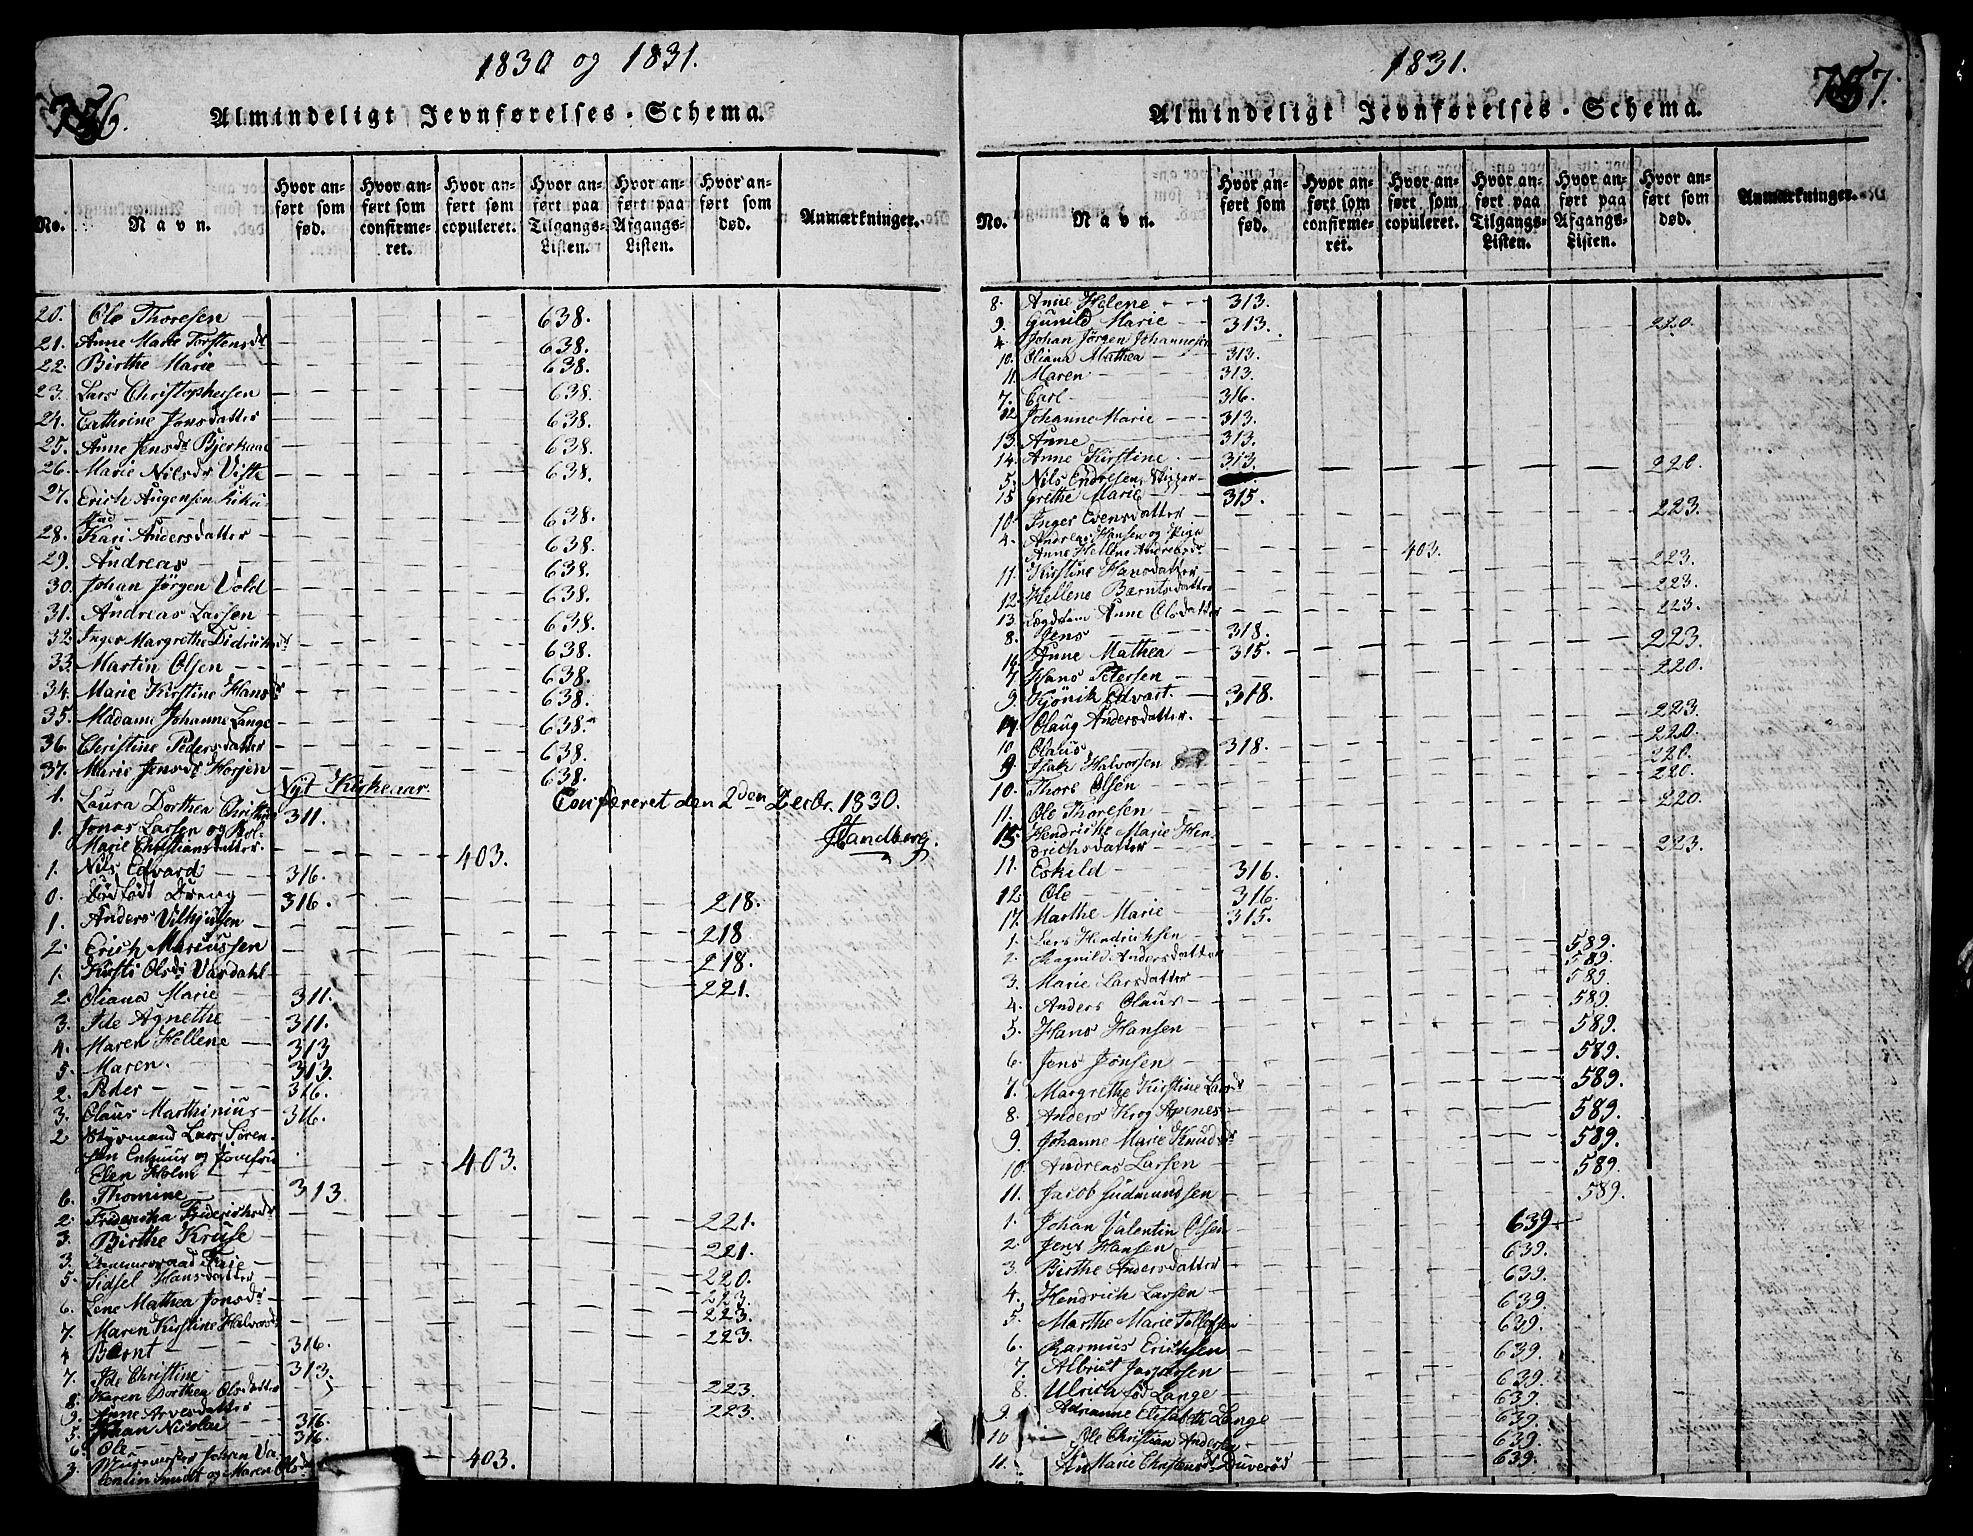 1830 og 1831.
756.
Almindeligt Jevnførelses-Schema.
No. Navn. Hvor anført som fød. Hvor anført som confirmeret. Hvor anført som copuleret. Hvor anført paa Tilgangs-Listen. Hvor anført paa Afgangs-Listen. Hvor anført som død. Anmærkninger.
20. Ole Thoresen 638.
21. Anne Marie Torstensdr 638.
22. Birthe Marie 638.
23. Lars Christophersen 638.
24. Cathrine Jonsdatter 638.
25. Anne Jensdr Bjerkaae 638.
26. Marie Nilsdr Viste 638.
27. Erich Augensen
stad 638.
28. Kari Andersdatter 638.
29. Andreas 638.
30. Johan Jørgen Vold 638.
31. Andreas Larsen 638.
32. Inger Margrethe Didrichsdr 638.
33. Martin Olsen 638.
34. Marie Kirstine Hansdr 638.
35. Madame Johanne Lange 638.
36. Christine Pedersdatter 638.
37. Marie Jensdr Horjen 638.
Nyt Kirkeaar.
Confereret den 2den Decbr. 1830.
1. Laura Dorthea 311.
1. Jonas Larsen og
Marie Christiansdatter 403.
1. Nils Edvard 316.
0. Dødfødt Dreng 316. 218.
1. Anders 218.
2. Erich Mariussen 218.
1. Kirsti Olsdr Vardahl 221.
2. Oliana Marie 311.
3. Ide Agnethe 311.
4. Maren Hellene 313
5. Maren. 313.
2. Peder 316.
3. Olaus Marthinius 316.
2. Styrmand Lars Søren-
sen og Jomfru
Elen Holm 403.
6. Thomine 313.
2. Fridericha Friderichsdr 221.
3. Birthe Kruse 221.
3. Cammerraad Faje 220.
5. Sidsel Hansdatter 223.
6. Lene Mathea Jonsdr 223.
7. Maren Kirstine Halvorsdr 223.
4 Bernt 316.
7. Ide Christine 313.
8. Karen Dorthea Olsdatter 223.
9. Anne Arvesdatter 223.
5. Johan Nicolai 316.
6. Ole 316.
3. Muurmester Johan Va-
lentin Smidt og Maren Olsdr 403.
1831.
757.
Almindeligt Jevnførelses-Schema.
No. Navn. Hvor anført som fød. Hvor anført som confirmeret. Hvor anført som copuleret. Hvor anført paa Tilgangs-Listen. Hvor anført paa Afgangs-Listen. Hvor anført som død. Anmærkninger.
8. Anne Helene 313.
9. Gunild Marie 313.
4. Johan Jörgen Johannesen 220.
10. Oliana Mathea 313.
11. Maren 313.
7. Carl 316.
12 Johanne Marie 313.
13. Anne 313.
14. Anne Kirstine 313.
5. Nils Endresen, 220.
15 Grethe Marie 315.
10. Inger Evensdatter 223.
4. Andreas Hansen og Pige
Anne Hellene Andreasdr 403.
11. Kirstine Hansdatter 223.
12. Hellene Berntsdatter 223.
13. Lægdslem Anne Olsdatter 223.
8. Jens 318.
16. Anne Mathea 315.
7 Hans Petersen 220.
9. Edvart 318.
14. Olaug Andersdatter 223.
10. Olaus 318.
9. Isak Halvorsen 220.
10. Thors Olsen 220.
11. Ole Thoresen 220.
15. Hendriche Marie Hen-
drichsdatter 223.
11. Eskild 316.
12. Ole 316.
17. Marthe Marie 315.
1. Lars Hendrichsen 589.
2. Ragnild Andersdatter 589.
3. Marie Larsdatter 589.
4. Anders Olaus 589.
5. Hans Hansen 589.
6. Jens Jonsen 589.
7. Margrethe Kirstine Larsdr 589.
8. Anders Krog Apenes 589.
9. Johanne Marie Knudsdr 589.
10. Andreas Larsen 589.
11. Jacob Gudmundsen 589.
1. Johan Valentin Olsen 639.
2. Jens Hansen 639.
3. Birthe Andersdatter 639.
4. Hendrich Larsen 639.
5. Marthe Marie Tollefsen 639.
6. Rasmus Erichsen 639.
7. Albrict Jaspersen 639.
8. Ulrica fød Lange 639.
9. Adrianne Elisabeth Lange 639.
10 Ole Christian Andersen 639.
11. An Marie Christensdr Duverød 639.